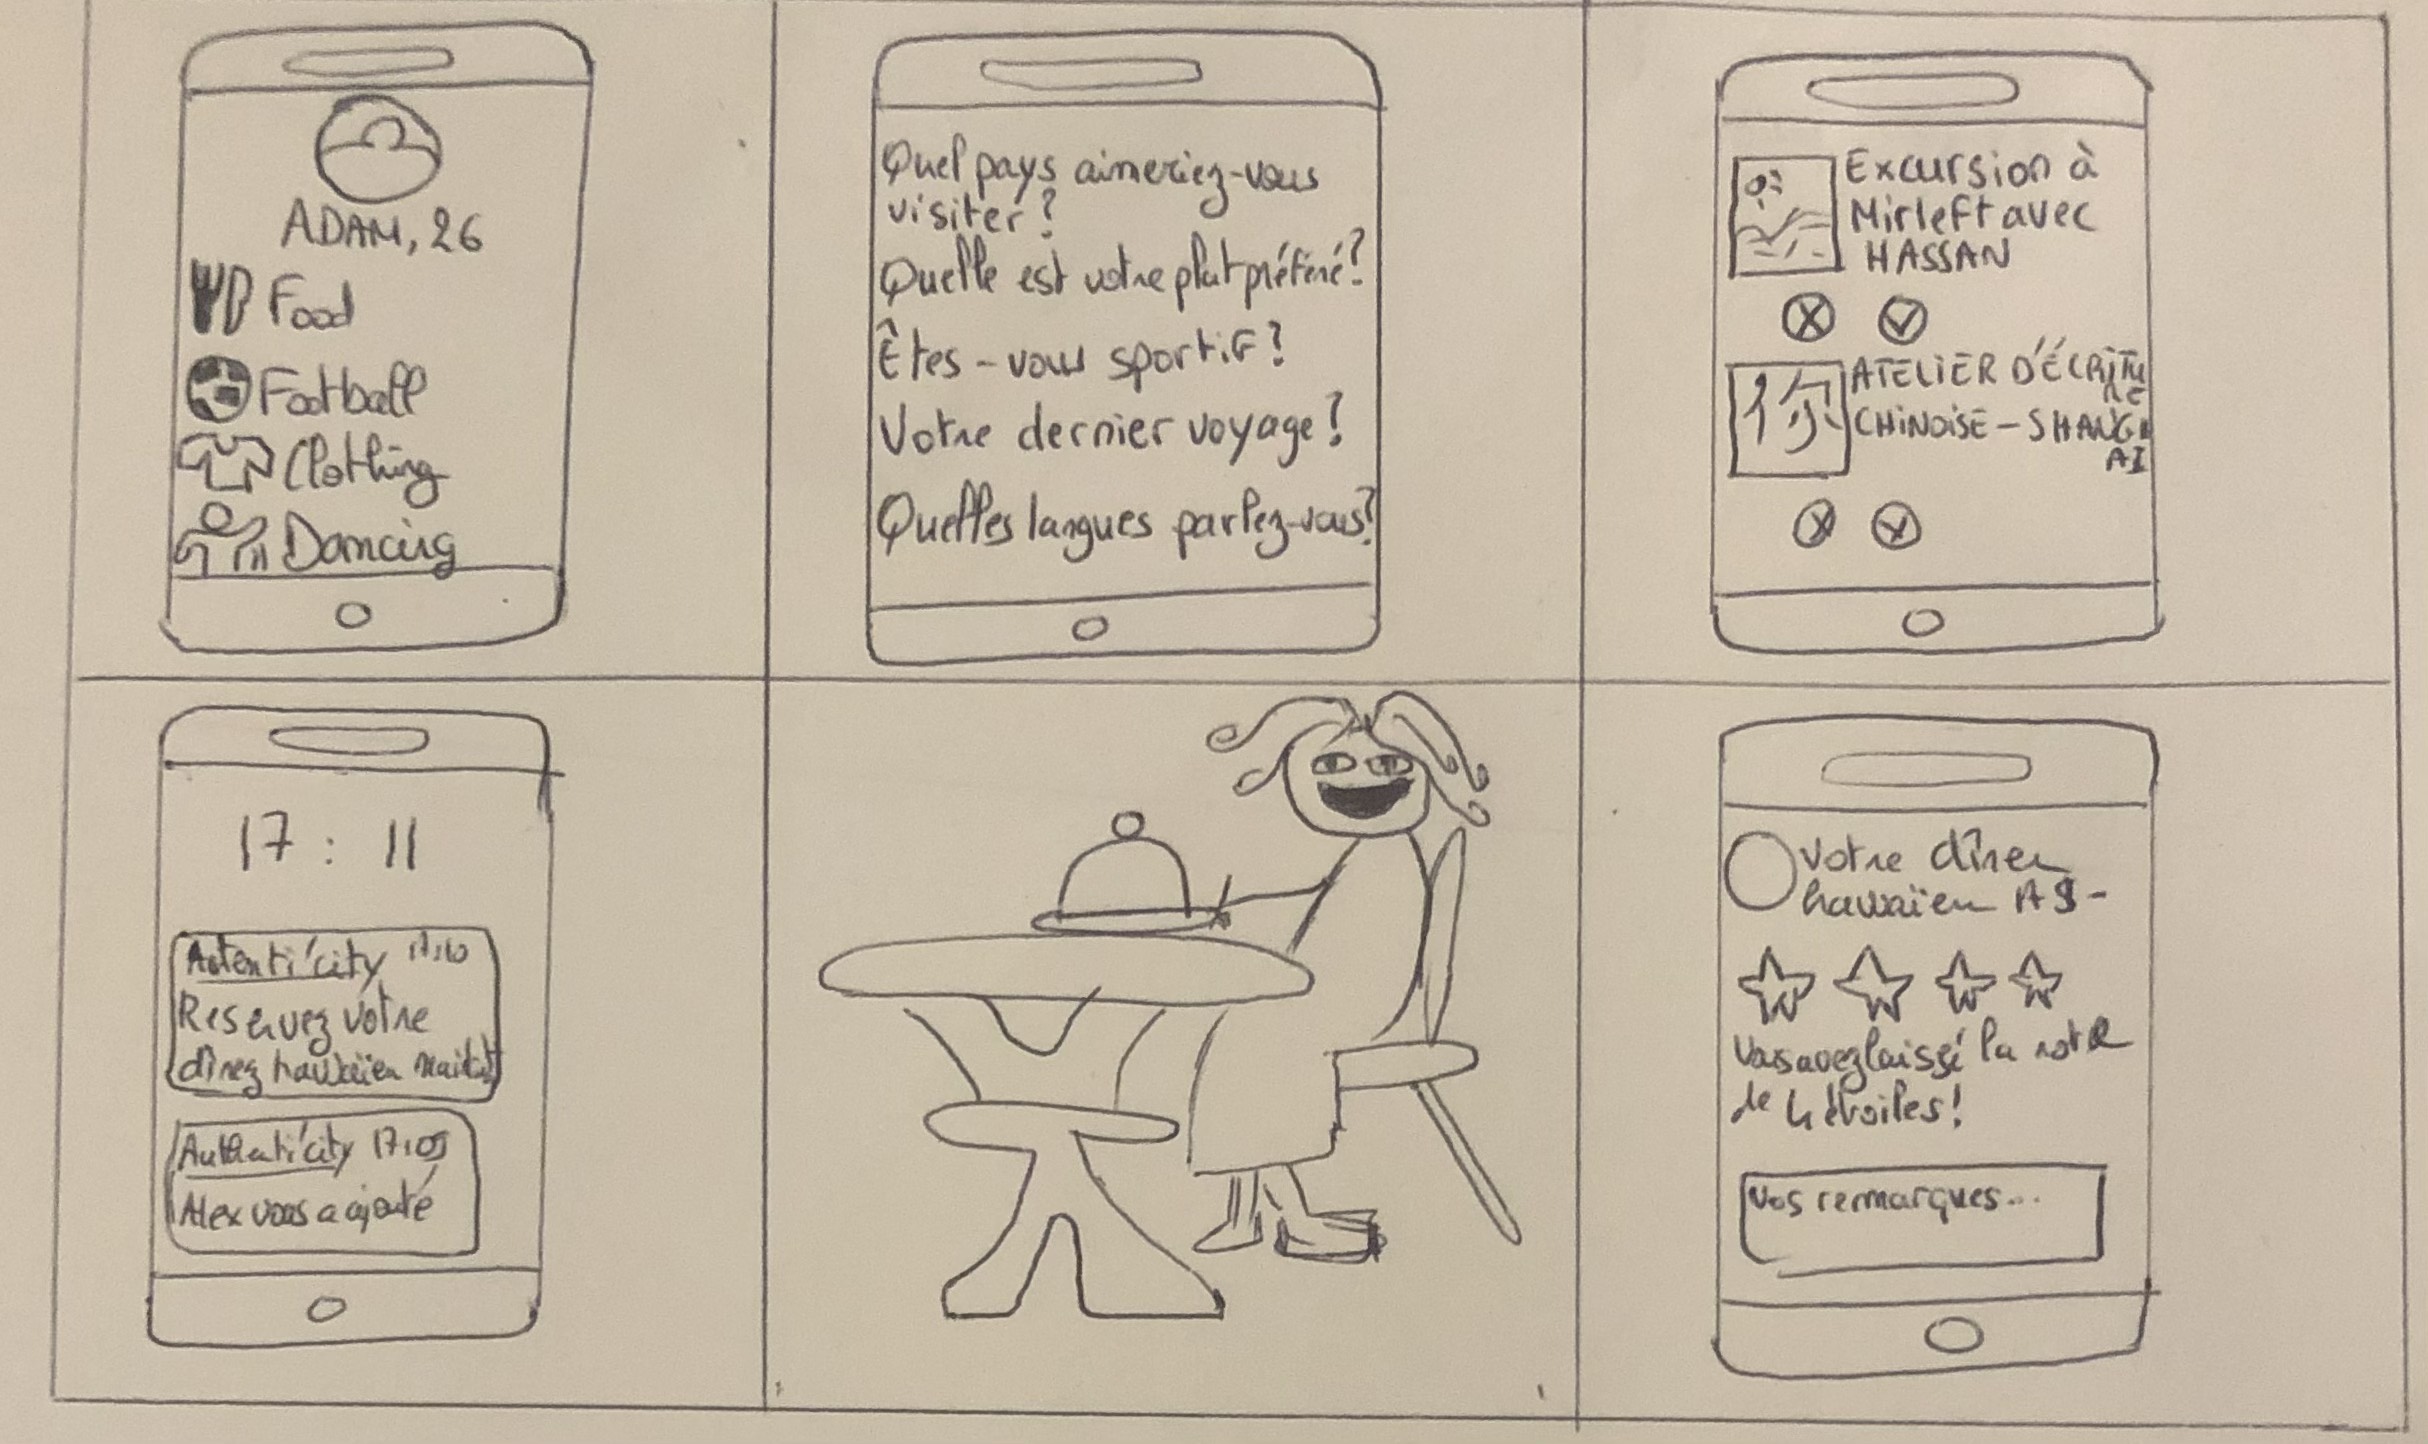 ADAM, 26
Food
Football
Clothing
Dancing
Quel pays aimeriez-vous
visiter ?
Quelle est votre plat préféré ?
Êtes-vous sportif ?
Votre dernier voyage ?
Quelles langues parlez-vous ?
Excursion à
Mirleft avec
HASSAN
你
ATELIER D'ÉCRITU
RE
CHINOISE - SHANGH
AI
17 : 11
Autenti'city 17:10
Reservez votre
dînez hawaïen
Authenti'city 17:05
Alex vous a ajouté
Votre dîner
hawaïen
Vous avez laissé la note
de 4 étoiles !
Vos remarques...